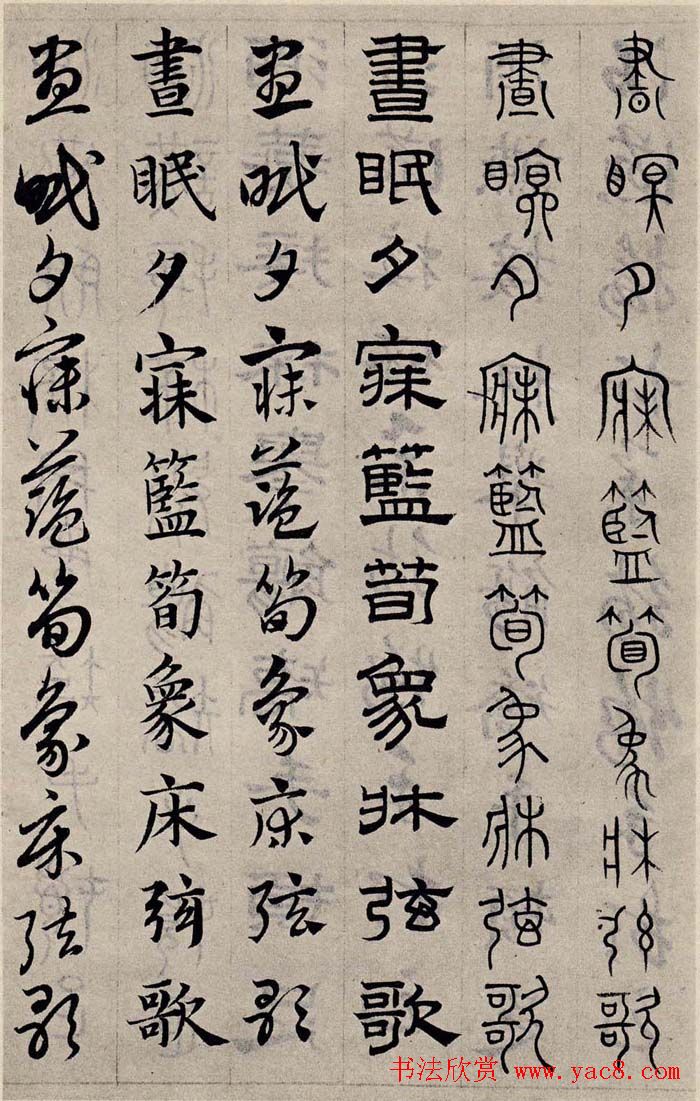 晝瞑夕寐籃筍象牀弦歌
晝瞑夕寐籃筍象牀弦歌
晝眠夕寐籃筍象牀弦歌
晝眠夕寐籃筍象床弦歌
晝眠夕寐籃筍象床弦歌
晝眠夕寐籃筍象床弦歌
书法欣赏 www.yac8.com